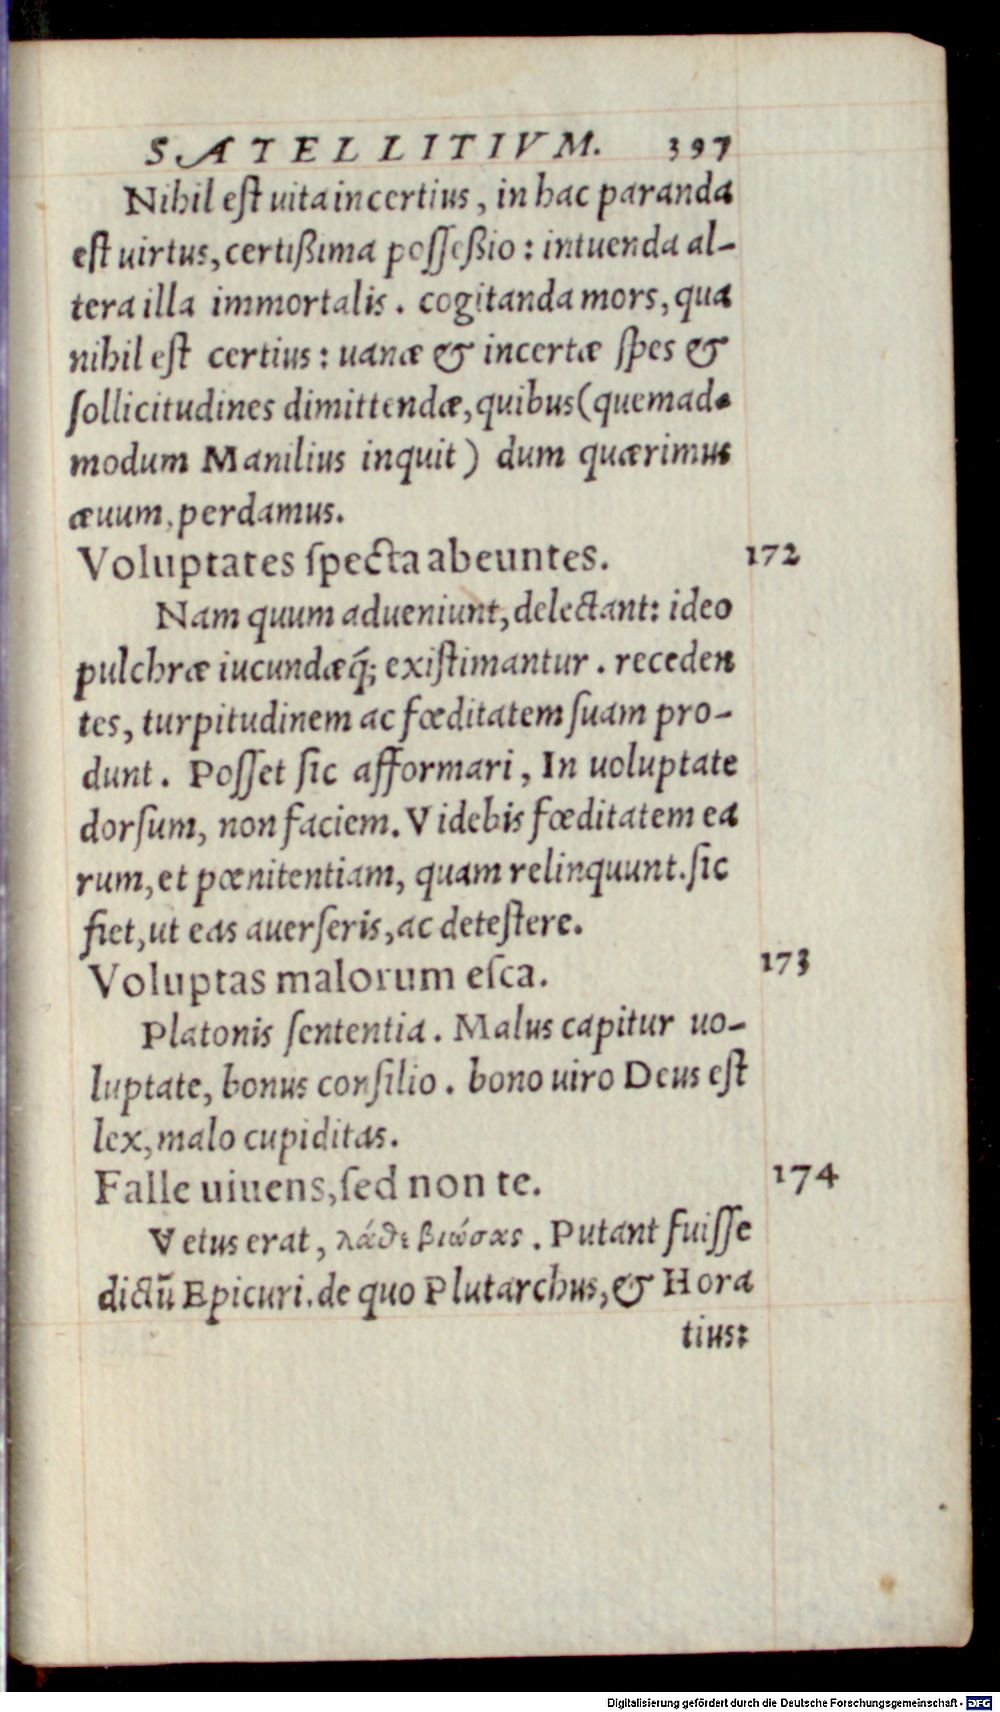 SATELLITIVM. 397
Nihil est uita incertius, in hac paranda
est uirtus, certißima posseßio: intuenda al-
tera illa immortalis. cogitanda mors, qua
nihil est certius: uanæ & incertæ spes &
sollicitudines dimittendæ, quibus (quemad-
modum Manilius inquit) dum quærimus
æuum, perdamus.
Voluptates specta abeuntes. 172
Nam quum adueniunt, delectant: ideo
pulchræ iucundæq́; existimantur. receden
tes, turpitudinem ac fœditatem suam pro-
dunt. Posset sic afformari, In uoluptate
dorsum, non faciem. Videbis fœditatem ea
rum, et pœnitentiam, quam relinquunt. sic
fiet, ut eas auerseris, ac detestere.
Voluptas malorum esca. 173
Platonis sententia. Malus capitur uo-
luptate, bonus consilio. bono uiro Deus est
lex, malo cupiditas.
Falle uiuens, sed non te. 174
Vetus erat, λάθε βιώσας. Putant fuisse
dictū Epicuri. de quo Plutarchus, & Hora
tius:
Digitalisierung gefördert durch die Deutsche Forschungsgemeinschaft - DFG